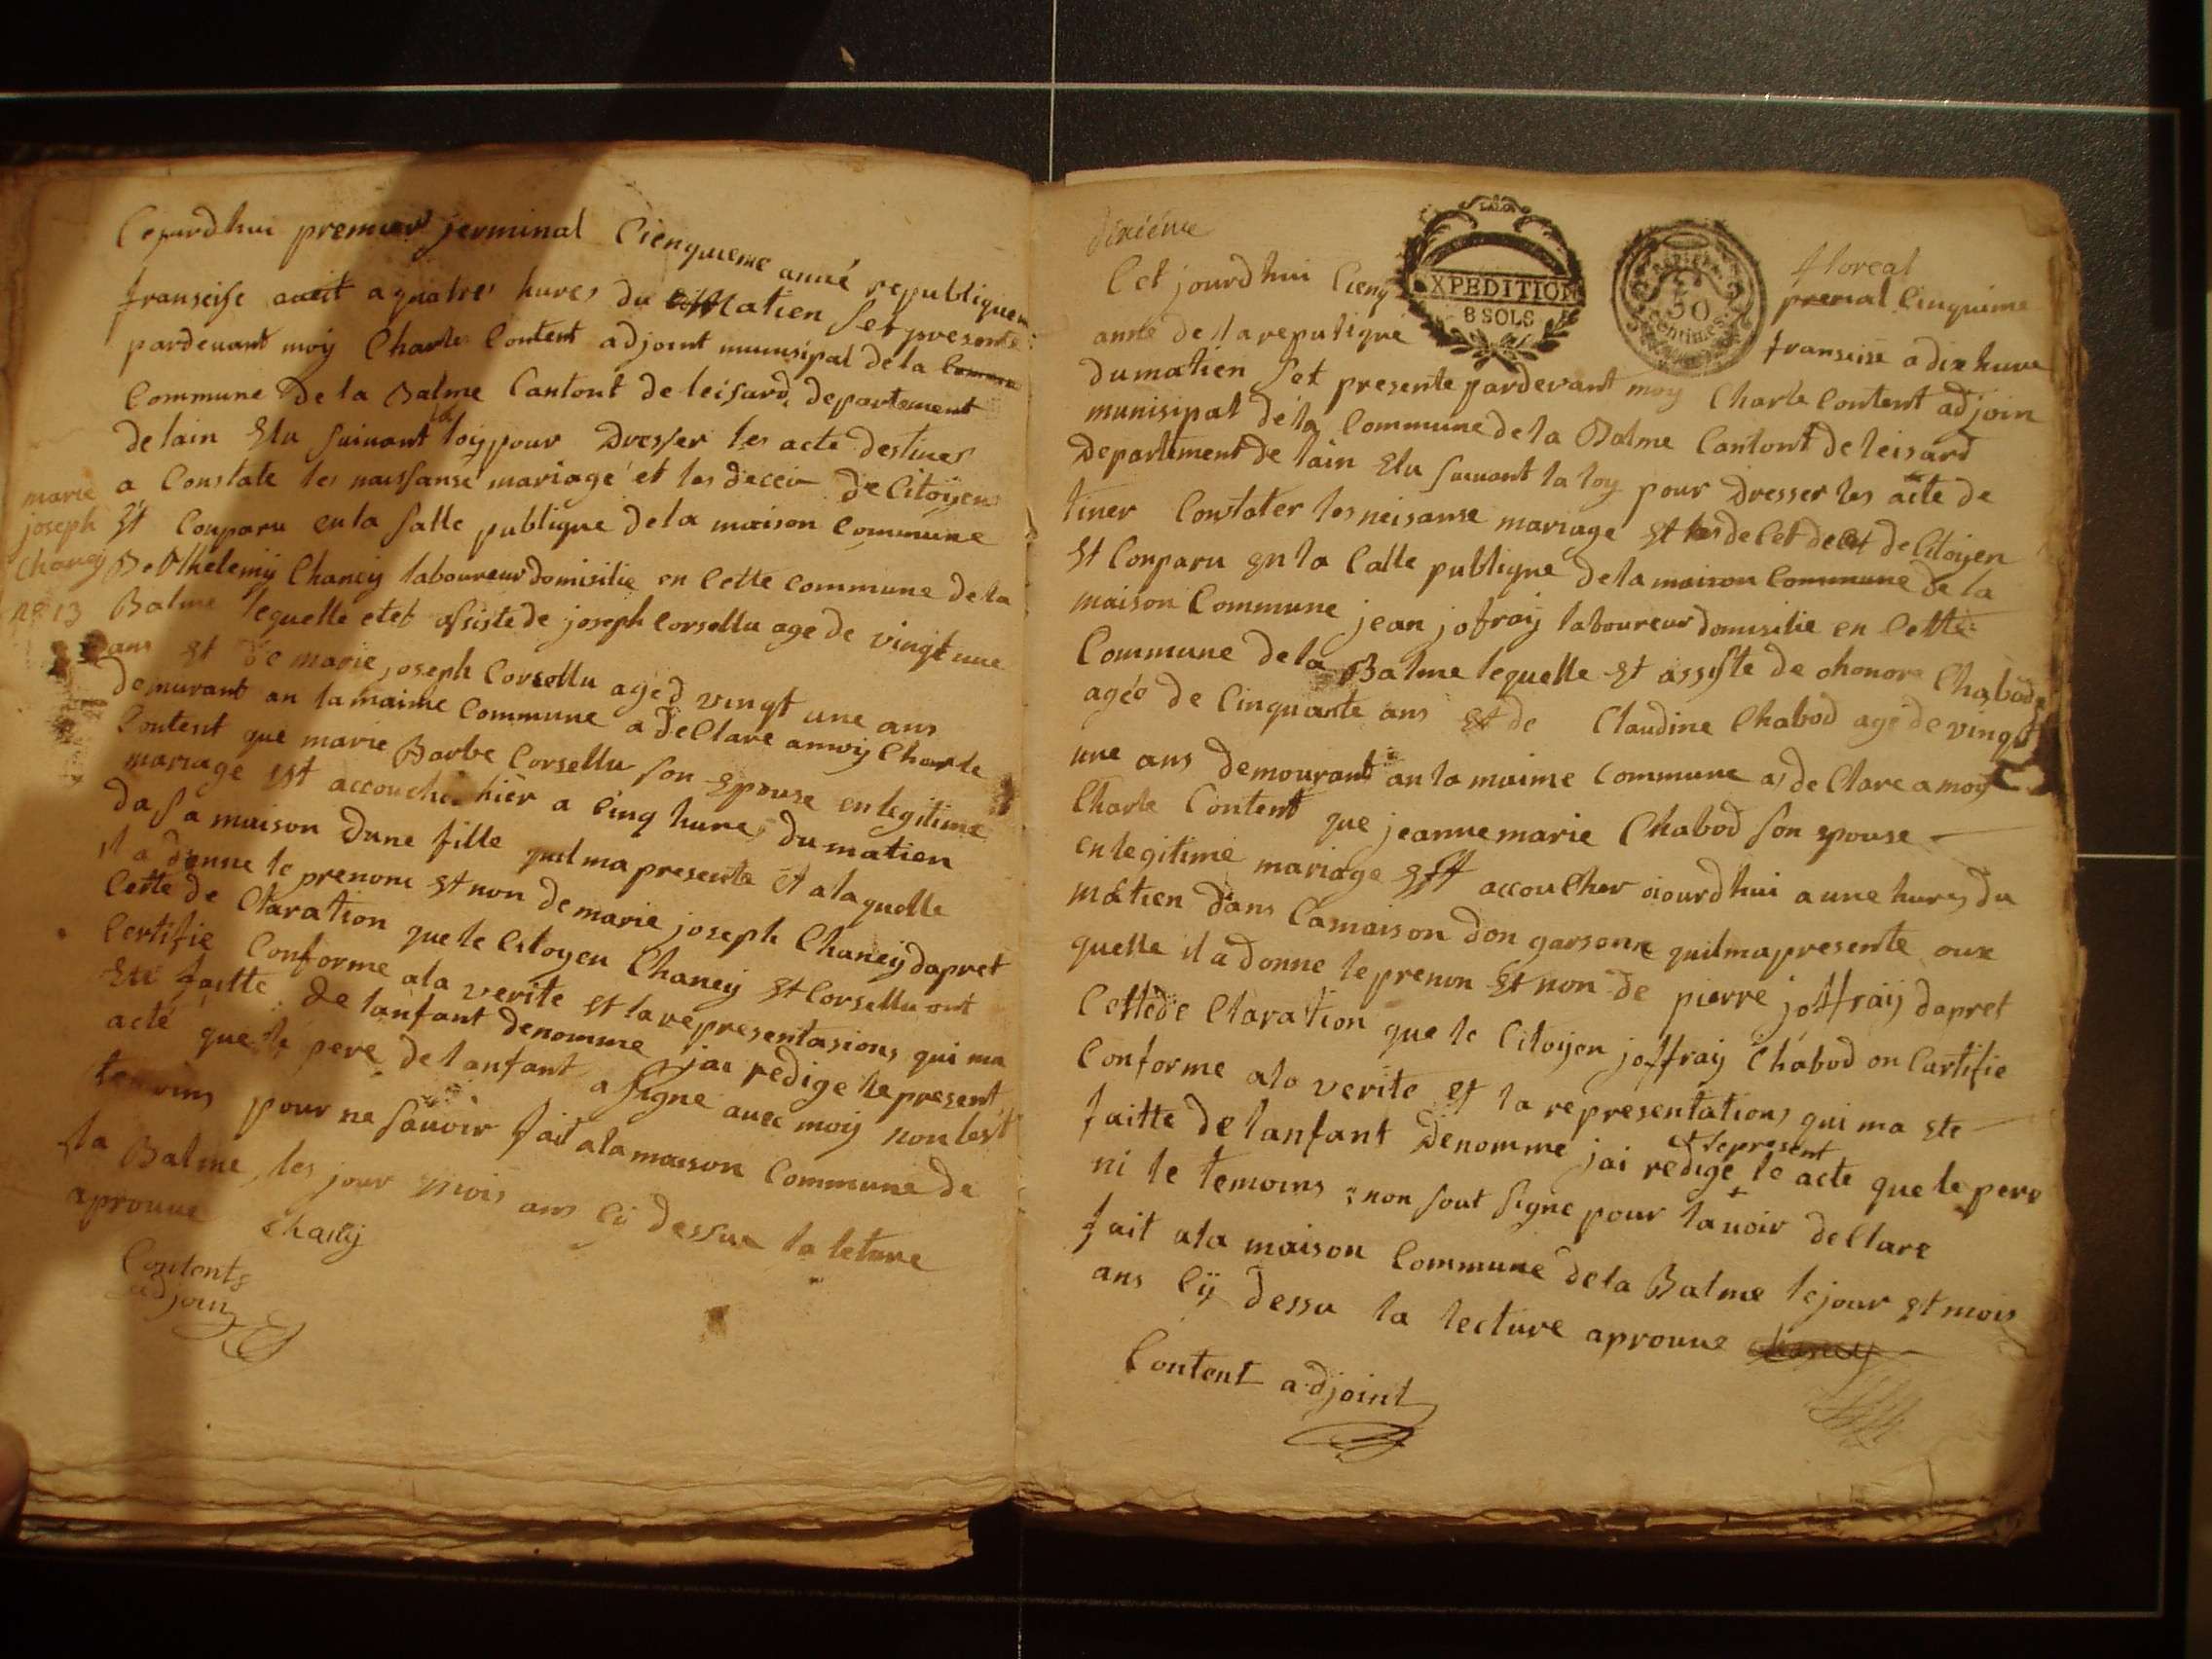 Cejourdhui premier jerminal Cienquieme anné republiquen
franseise a quatres hures du Matien Set presente
pardevant moij Charle Content adjoint munisipal de la
Commune de la Balme Cantont de leisard departement
de lain Elu suivant la loij pour Dresser les acte destines
a Constate les naissanse mariage et les decer de Citoÿen
Et Conparu en la salle publique de la maison Commune
Bethelemij Chaneij laboureur domisilie en Cette commune de la
Balme lequelle etet assiste de joseph Corsellu age de vingt une
ans Et de marie joseph Corsellu age d vingt une ans
demurant an la maime Commune a deClare a moij Charle
Content que marie Barbe Corsellu son Epouse en legitime
mariage Est accouchée hier a Cinq hures du matien
da sa maison Dune fille quil ma presente Et a la quelle
il a donne le prenom Et non de marie joseph Chaneij dapret
Cette de Claration que le Citoyen Chaneij Et Corsellu ont
Certifie Conforme a la verite Et la representasions qui ma
Ete faitte de lanfant denomme jai redige le present
acte que le pere de lanfant a signe avec moij non lest
temoins pour ne savoir fait a la maison Commune de
la Balme les jour mois ans Cij dessus la leture
aprouve Chaneij
Contents
adjoin
marie
joseph
Chaneij
n° 13
dixiéme
EXPEDITION
8 SOLS
50
Centimes
floreal
Cet jourdhui Cienq prerial Cinquime
anne de la republique franseise a dix hure
du matien Set presente pardevant moy Charle Content adjoin
munisipal de la Commune de la Balme Cantont de leisard
Departement de lain Elu suivant la loy pour Dresser les acte de
tiner Constater les neisanse mariage Et les de Cet de Citoijen
Et Conparu En la Calle publique de la maison Commune de la
maison Commune jean jofraij laboureur domisilie en Cette
Commune de la Balme lequelle Et assiste de ohonore Chabod
agée de Cinquante ans Et de Claudine Chabod age de vingt
une ans demourant an la maime Commune a de Clare a moy
Charle Content que jeanne marie Chabod son Epouse
en legitime mariage Est accoucher oiourdhui a une hures du
matien dans Camaison don garsonne quil ma presente oux
quelle il a donne le prenon Et non de pierre joffraij dapret
Cette de Claration que le Citoijen joffraij Chabod on Certifie
Conforme a la verite et la representations qui ma Ete
faitte de lanfant Denomme jai redige le acte que le pere
le present
ni le temoins non sout signe pour lavoir deClare
fait a la maison Commune de la Balme le jour Et mois
ans Cij dessu la lecture aprouve Chaney
Content adjoint